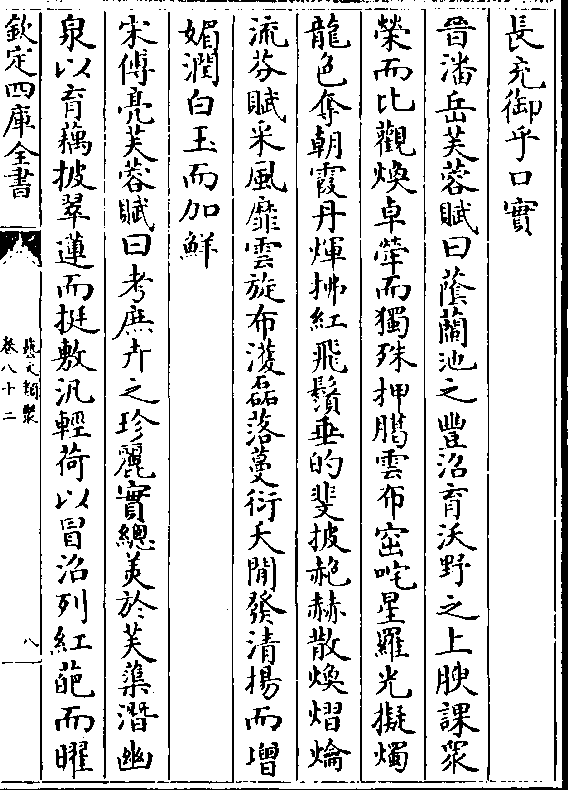 長充御乎口實
晉潘岳芙蓉賦曰蔭蘭池之豐沼育沃野之上腴課衆
榮而比觀煥卓犖而獨殊押䐑雲布窋咤星羅光擬燭
龍色奪朝霞丹煇拂紅飛鬚垂的斐披赩赫散煥熠爚
流芬賦采風靡雲旋布濩磊落蔓衍夭閒發清揚而增
媚潤白玉而加鮮
宋傅亮芙蓉賦曰考庶卉之珍麗實總美於芙蕖潛幽
泉以育藕披翠蓮而挺敷汎輕荷以冒沼列紅葩而曜
欽定四庫全書
藝文類聚
卷八十二
八